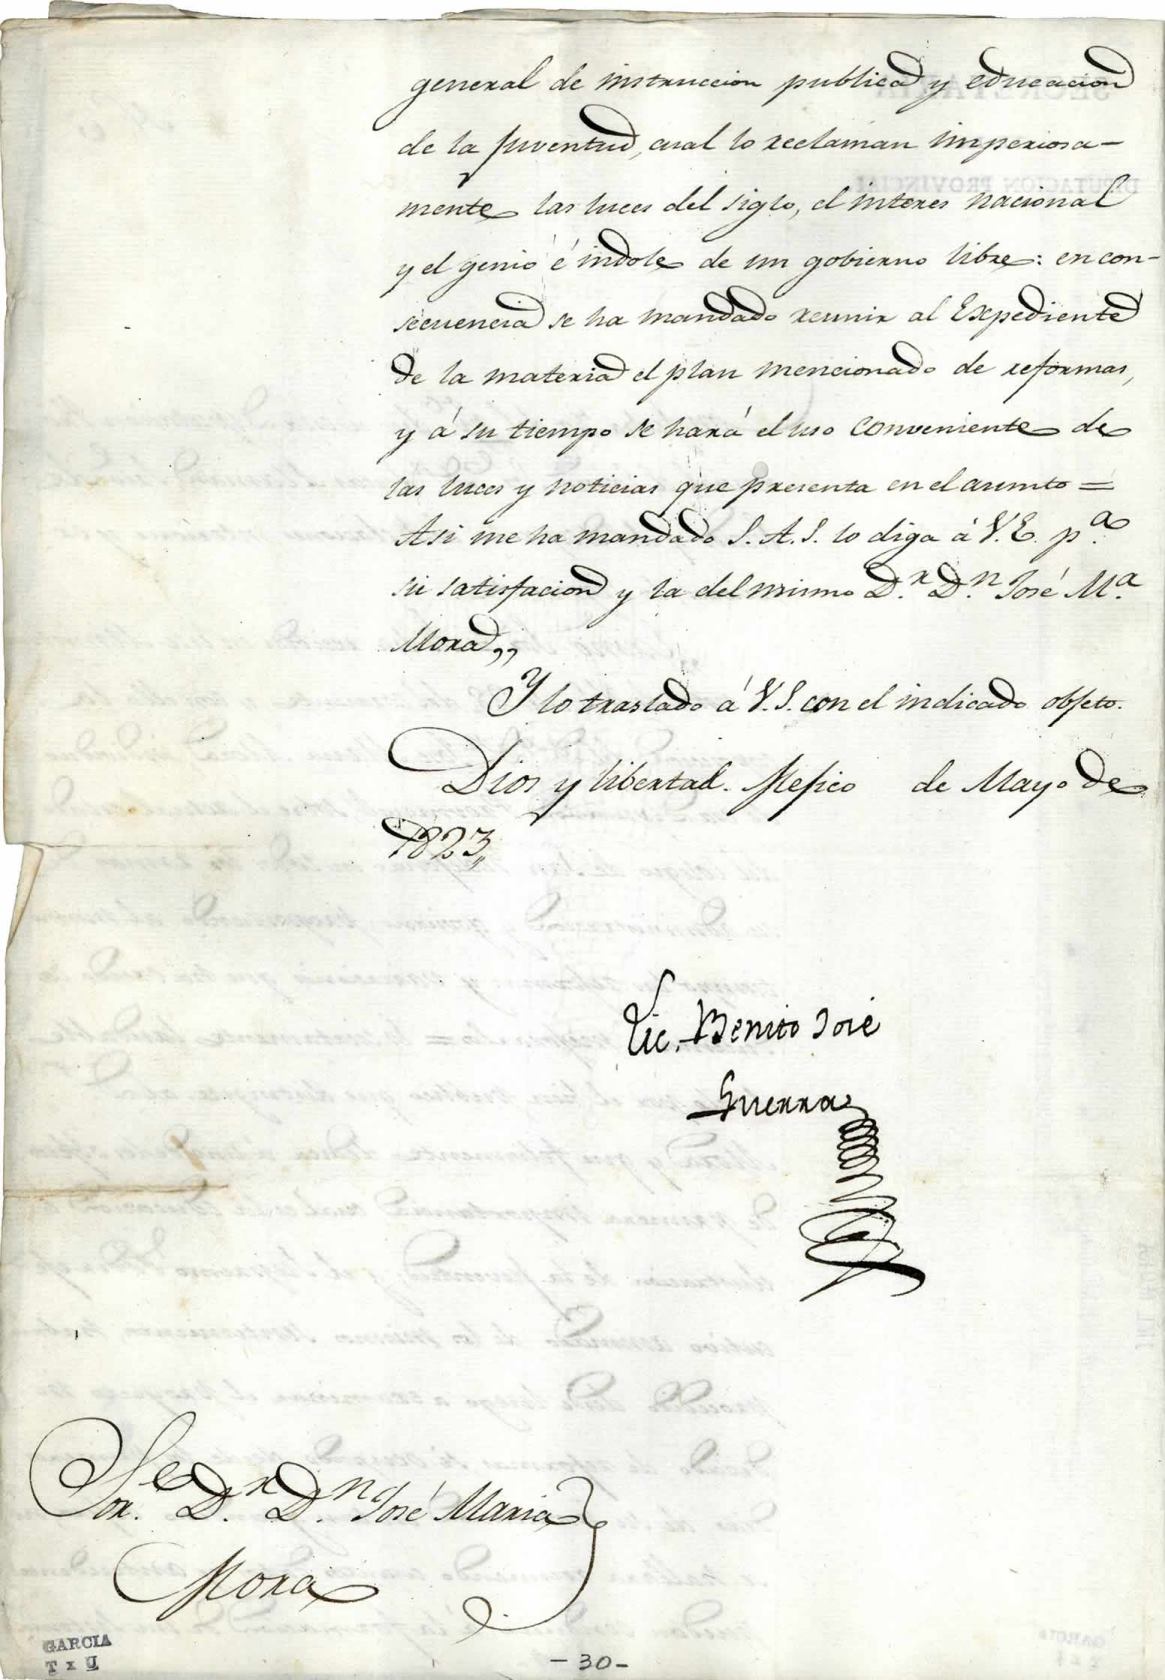 general de instruccion publica y educacion
de la Juventud, cual lo reclaman imperiosa-
mente las luces del siglo, el interes nacional
y el genio é indole de un gobierno libre: en con-
secuencia se ha mandado reunir al Expediente
de la materia el plan mencionado de reformas,
y á su tiempo se hará el uso conveniente de
las luces y noticias que presenta en el asunto =
Asi me ha mandado S. A. S. lo diga á V. E. p.ª
su satisfacion y la del mismo D.r D.n José M.ª
Mora,,
Y lo traslado á V. S. con el indicado objeto.
Dios y libertad. Mejico de Mayo de
1823,,
Lic. Benito José
Guerra
Sor. D.r D.n José Maria
Mora
GARCIA
T x U
-30-